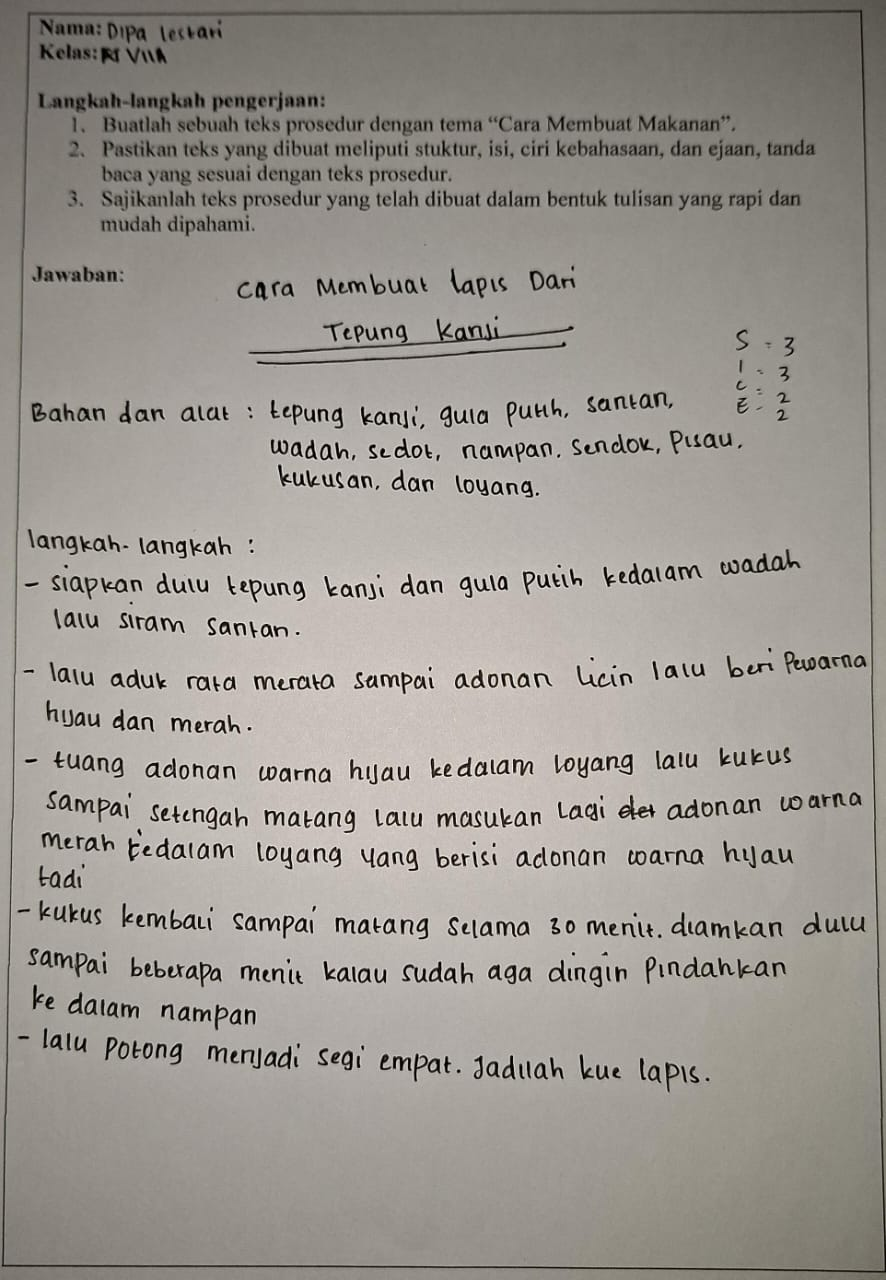 Nama: Dipa lestari
Kelas: VIIA
Langkah-langkah pengerjaan:
1. Buatlah sebuah teks prosedur dengan tema “Cara Membuat Makanan”.
2. Pastikan teks yang dibuat meliputi stuktur, isi, ciri kebahasaan, dan ejaan, tanda
baca yang sesuai dengan teks prosedur.
3. Sajikanlah teks prosedur yang telah dibuat dalam bentuk tulisan yang rapi dan
mudah dipahami.
Jawaban:
Cara Membuat lapis Dari
Tepung Kanji
S = 3
I = 3
C = 2
E = 2
Bahan dan alat : tepung kanji, gula Putih, santan,
wadah, sedot, nampan. Sendok, Pisau.
kukusan, dan loyang.
langkah-langkah :
- siapkan dulu tepung kanji dan gula Putih kedalam wadah
lalu siram santan.
- lalu aduk rata merata sampai adonan licin lalu beri Pewarna
hijau dan merah.
- tuang adonan warna hijau kedalam loyang lalu kukus
sampai setengah matang lalu masukan lagi adonan warna
merah kedalam loyang yang berisi adonan warna hijau
tadi
- kukus kembali sampai matang selama 30 menit. diamkan dulu
sampai beberapa menit kalau sudah aga dingin Pindahkan
ke dalam nampan
- lalu Potong menjadi segi empat. Jadilah kue lapis.